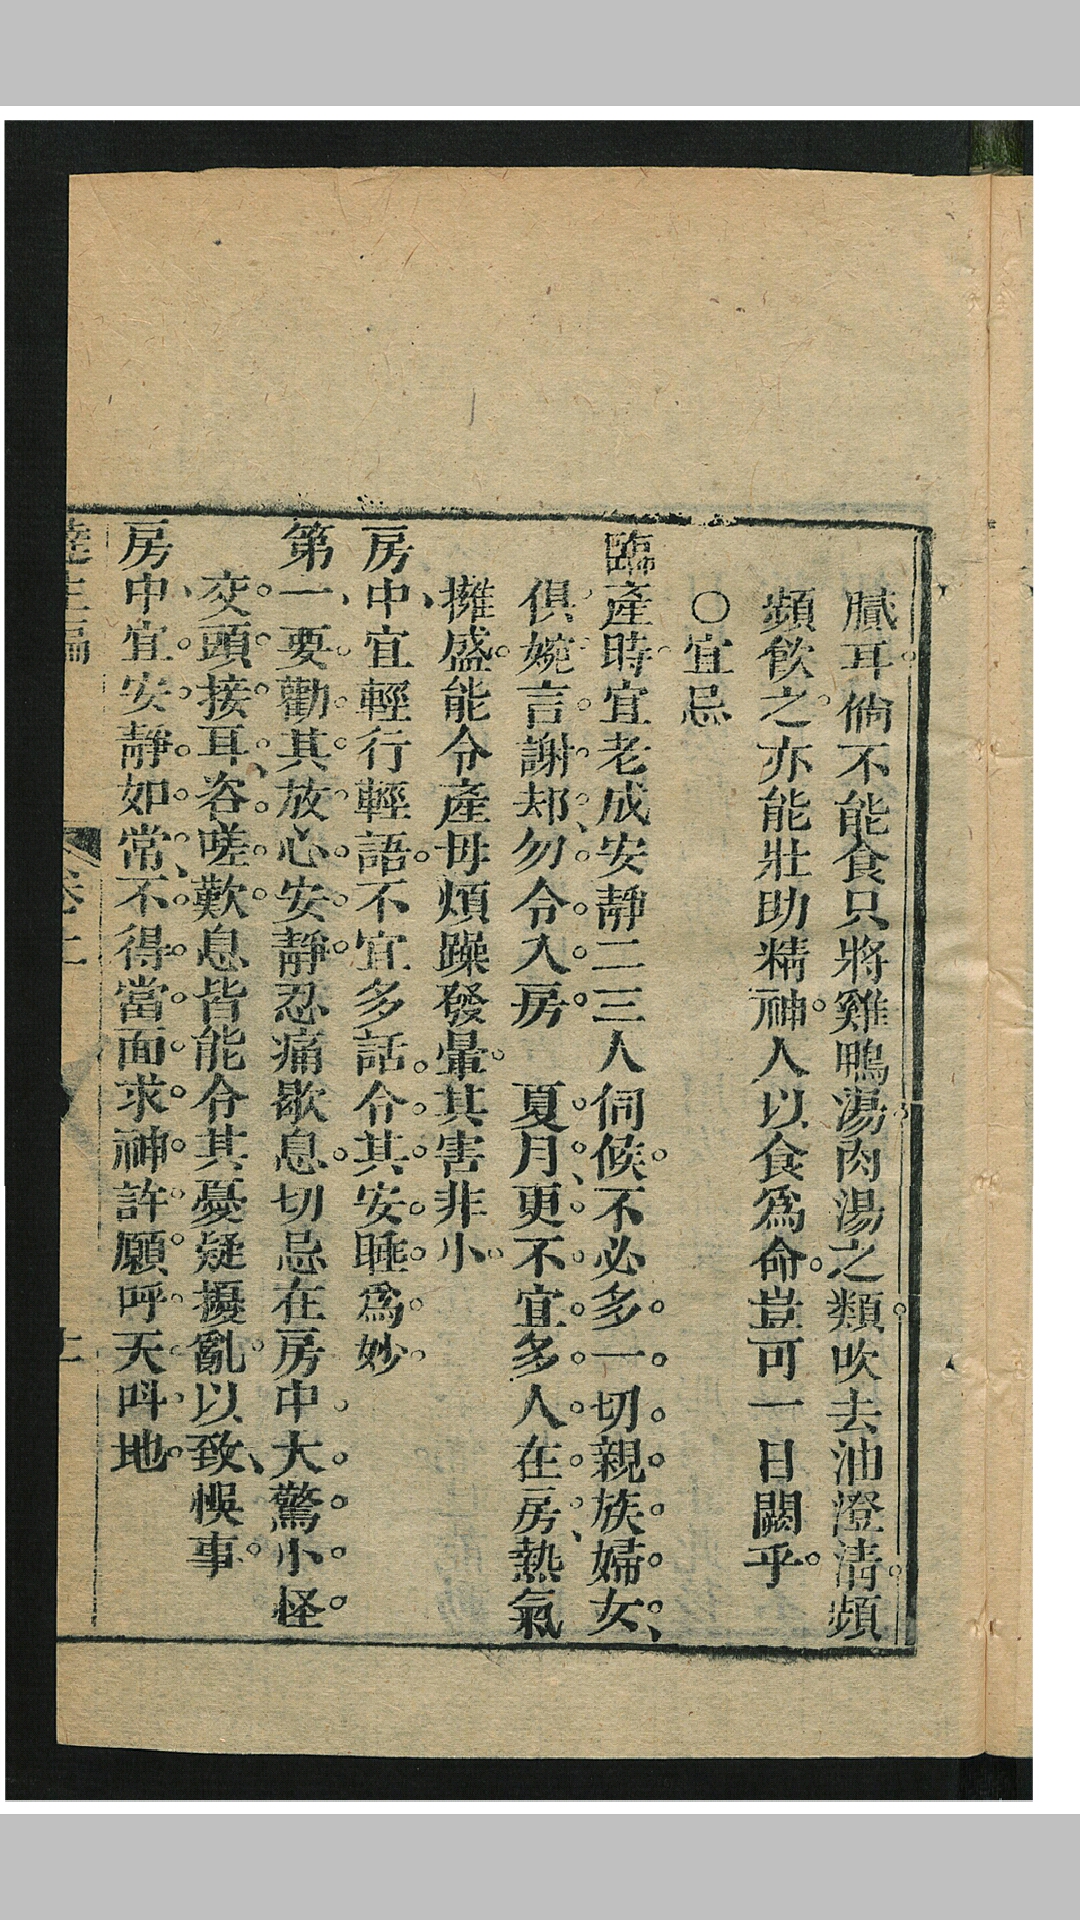 膩耳倘不能食只將雞鴨湯肉湯之類吹去油澄清頻
頻飲之亦能壯助精神人以食爲命豈可一日闕乎
〇宜忌
臨產時宜老成安靜二三人伺候不必多一切親族婦女
俱婉言謝却勿令入房　夏月更不宜多人在房熱氣
擁盛能令產母煩躁發暈其害非小
房中宜輕行輕語不宜多話令其安睡爲妙
第一要勸其放心安靜忍痛歇息切忌在房中大驚小怪
交頭接耳咨嗟歎息皆能令其憂疑擾亂以致悞事
房中宜安靜如常不得當面求神許願呼天呌地
達生編　卷上